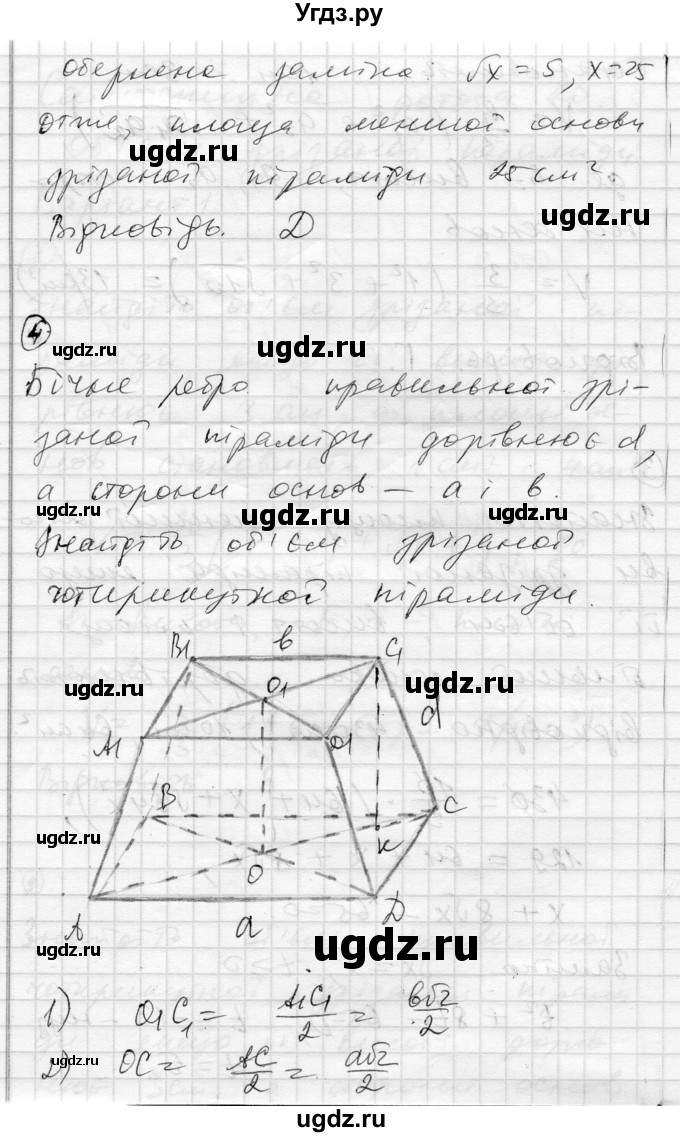 Угдз.ру
обернена заміна: √x = 5, x=25
отже, площа меншої основи
ugdz.ru
ugdz.ru
зрізаної піраміди 25 см².
Відповідь. D
4
ugdz.ru
ugdz.ru
Бічне ребро правильної зрі-
заної піраміди дорівнює d,
ugdz.ru
а сторони основ – a і b.
ugdz.ru
ugdz.ru
ugdz.ru
Знайдіть об'єм зрізаної
чотирикутної піраміди.
B1 b C1
ugdz.ru
O1
ugdz.ru
d
A1 D1
B C
ugdz.ru
K
O
A a D
ugdz.ru
ugdz.ru
1) O1C1 = A1C1/2 = b√2/2
ugdz.ru
2) OC = AC/2 = a√2/2
ugdz.ru